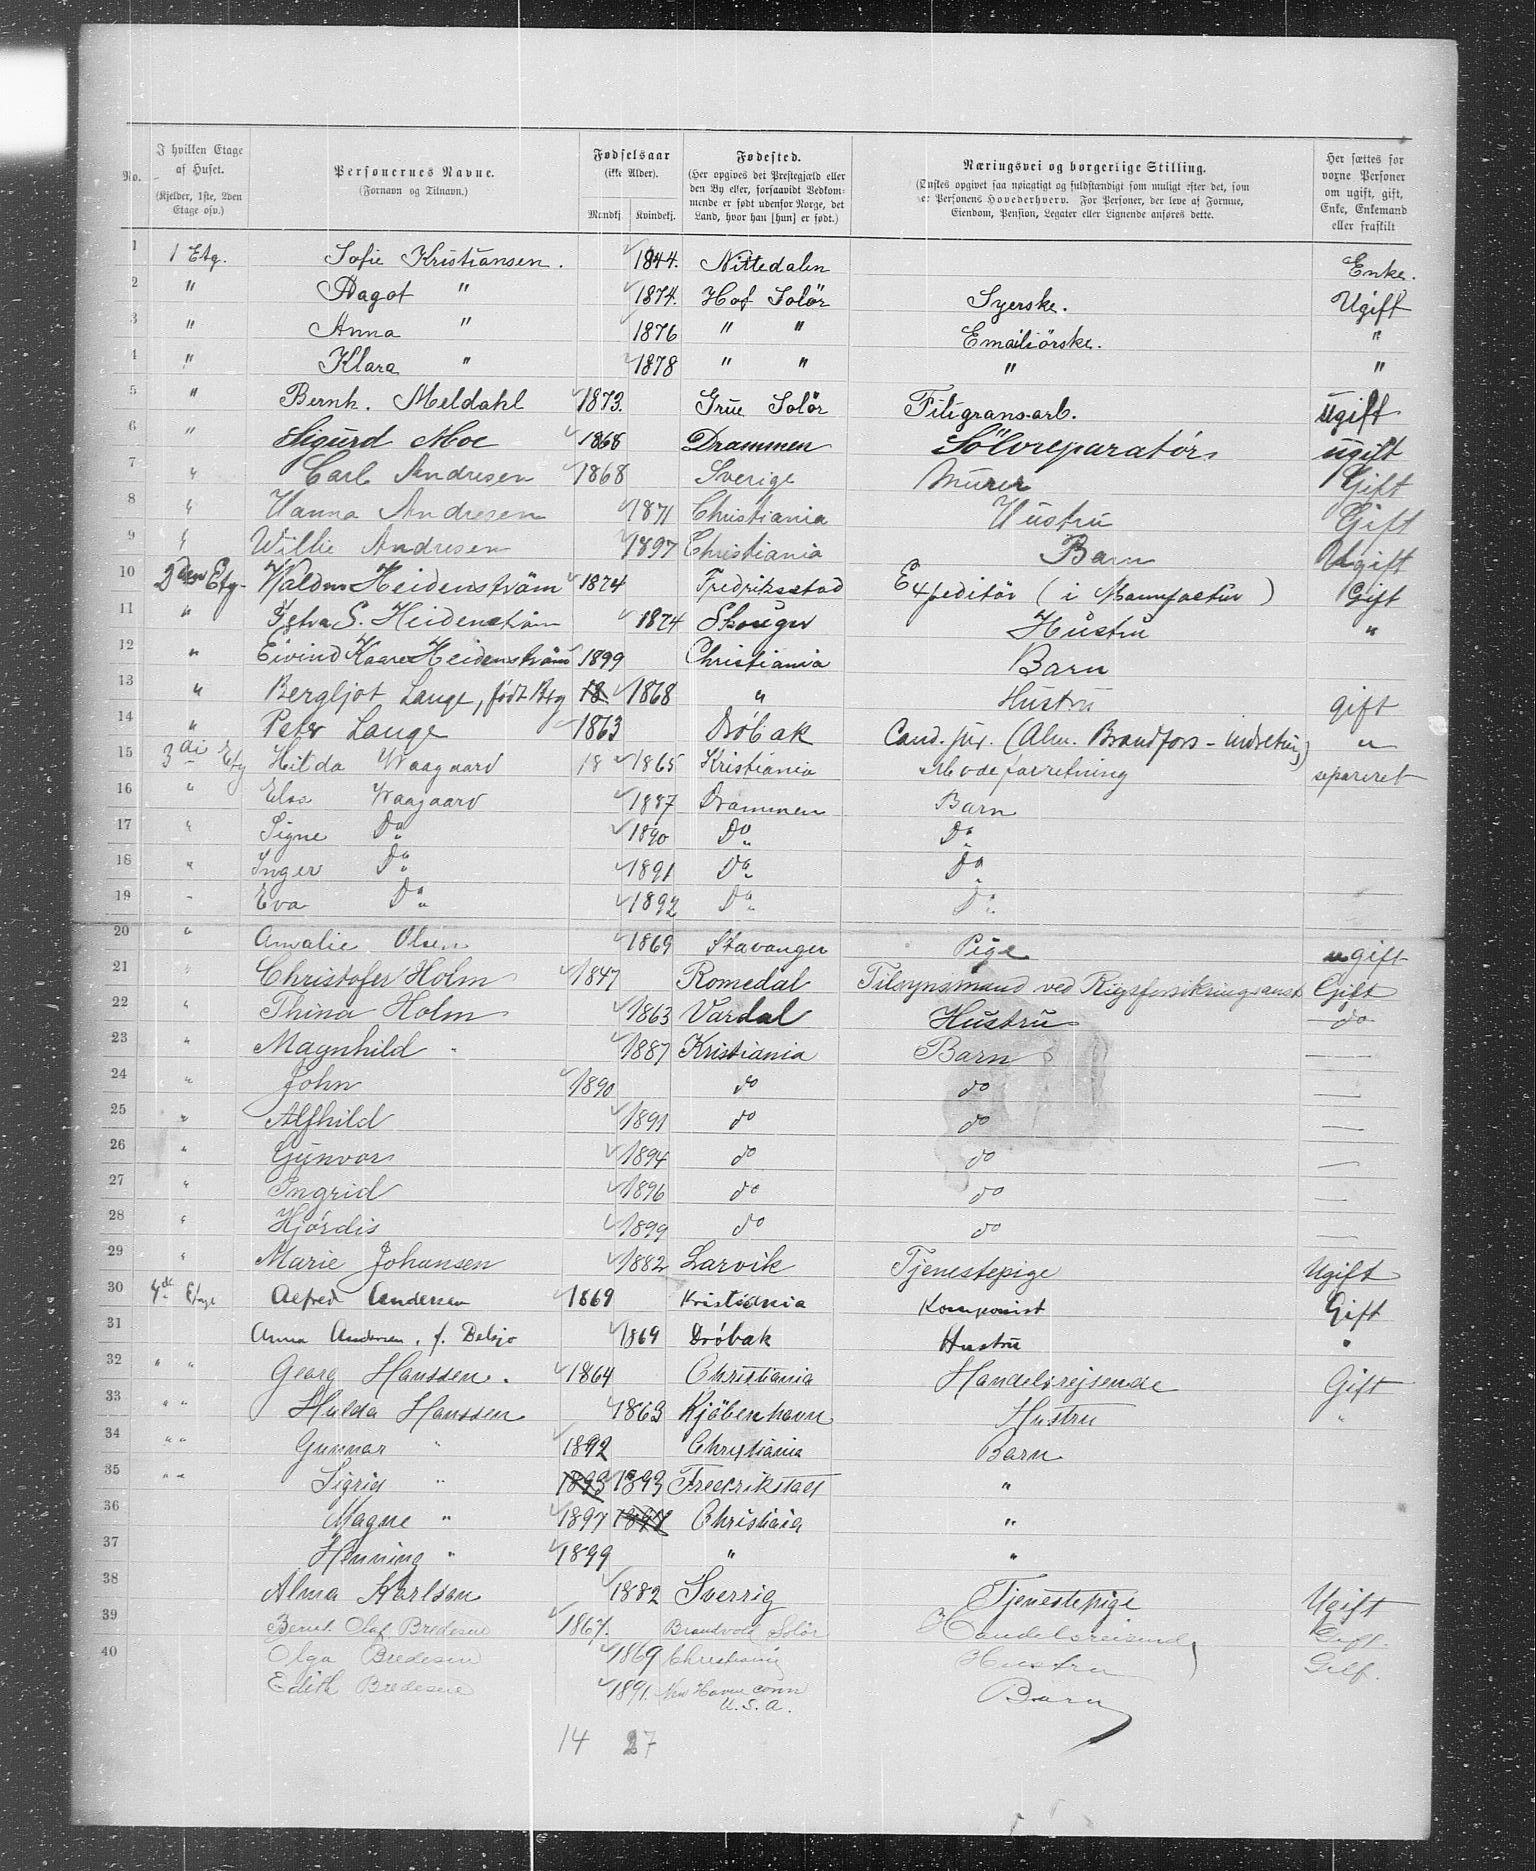 No.
I hvilken Etage af Huset. (Kjelder, 1ste, 2den Etage osv.)
Personernes Navne. (Fornavn og Tilnavn.)
Fødselsaar (ikke Alder). Mandkj. Kvindekj.
Fødested. (Her opgives det Prestegjæld eller den By eller, forsaavidt Vedkommende er født udenfor Norge, det Land, hvor han [hun] er født.)
Næringsvei og borgerlige Stilling. (Ønskes opgivet saa nøiagtigt og fuldstændigt som muligt efter det, som er Personens Hovederhverv. For Personer, der leve af Formue, Eiendom, Pension, Legater eller Lignende anføres dette.
Her sættes for voxne Personer om ugift, gift, Enke, Enkemand eller fraskilt
1 1 Etg. Sofie Kristiansen. 1844. Nittedalen Enke.
2 " Dagot " 1874. Hof Solör Syerske. Ugift
3 " Anna " 1876 " " Emailiörske. "
4 " Klara " 1878 " " " "
5 " Bernh. Meldahl 1873. Grue Solör Filigransarb. ugift
6 " Sigurd Moe 1868 Drammen Sölvreparatör ugift
7 " Carl Andresen 1868 Sverige Murer Gift
8 " Hanna Andresen 1871 Christiania Hustru Gift
9 " Willie Andresen 1897 Christiania Barn Ugift
10 2den Etg. Waldm Heidenström 1874 Fredriksstad Expeditör (i Manufactur) Gift
11 " S. Heidenström 1874 Skouger Hustru "
12 " Eivind Kaare Heidenström 1899 Christiania Barn
13 " Bergljot Lange, født 18 1868 " Hustru gift
14 " Peter Lange 1863 Dröbak Cand. jur. (Alm. Brandfors-indretning) "
15 3di Etg Hilda Waagaard 18 1865 Kristiania Modeforretning separeret
16 " Elsa Waagaard 1887 Drammen Barn
17 " Signe Do 1890 Do Do
18 " Inger Do 1891 Do Do
19 " Eva Do 1892 Do Do
20 " Amalie Olsen 1869 Stavanger Pige ugift
21 " Christofer Holm 1847 Romedal Tilsynsmand ved Rigsforsikringsanst Gift
22 " Thina Holm 1863 Vardal Hustru do
23 " Magnhild " 1887 Kristiania Barn —
24 " John 1890 do do —
25 " Alfhild 1891 do do —
26 " Gunvor 1894 do do —
27 " Ingrid 1896 do do —
28 " Hjördis 1899 do do —
29 " Marie Johansen 1882 Larvik Tjenestepige Ugift
30 4de Etage Alfred Andersen 1869 Kristiania Komponist Gift
31 Anna Andersen, f. Belsjø 1869 Dröbak Hustru "
32 " " Georg Hanssen. 1864 Christiania Handelsrejsende Gift
33 " " Hulda Hanssen 1863 Kjöbenhavn Hustru "
34 " " Gunnar " 1892 Christiania Barn
35 " " Sigrid " 1893 1893 Fredrikstad "
36 Magne " 1897 1897 Christiania "
37 Henning " 1899 " "
38 Alma Karlsen 1882 Sverrig Tjenestepige Ugift
39 Bernt Olaf Bredesen 1867. Brandvold Solör Handelsreisende Gift.
40 Olga Bredesen 1869 Christiania Hustru Gift.
Edith Bredesen 1891. New Haven conn U.S.A. Barn
14 27